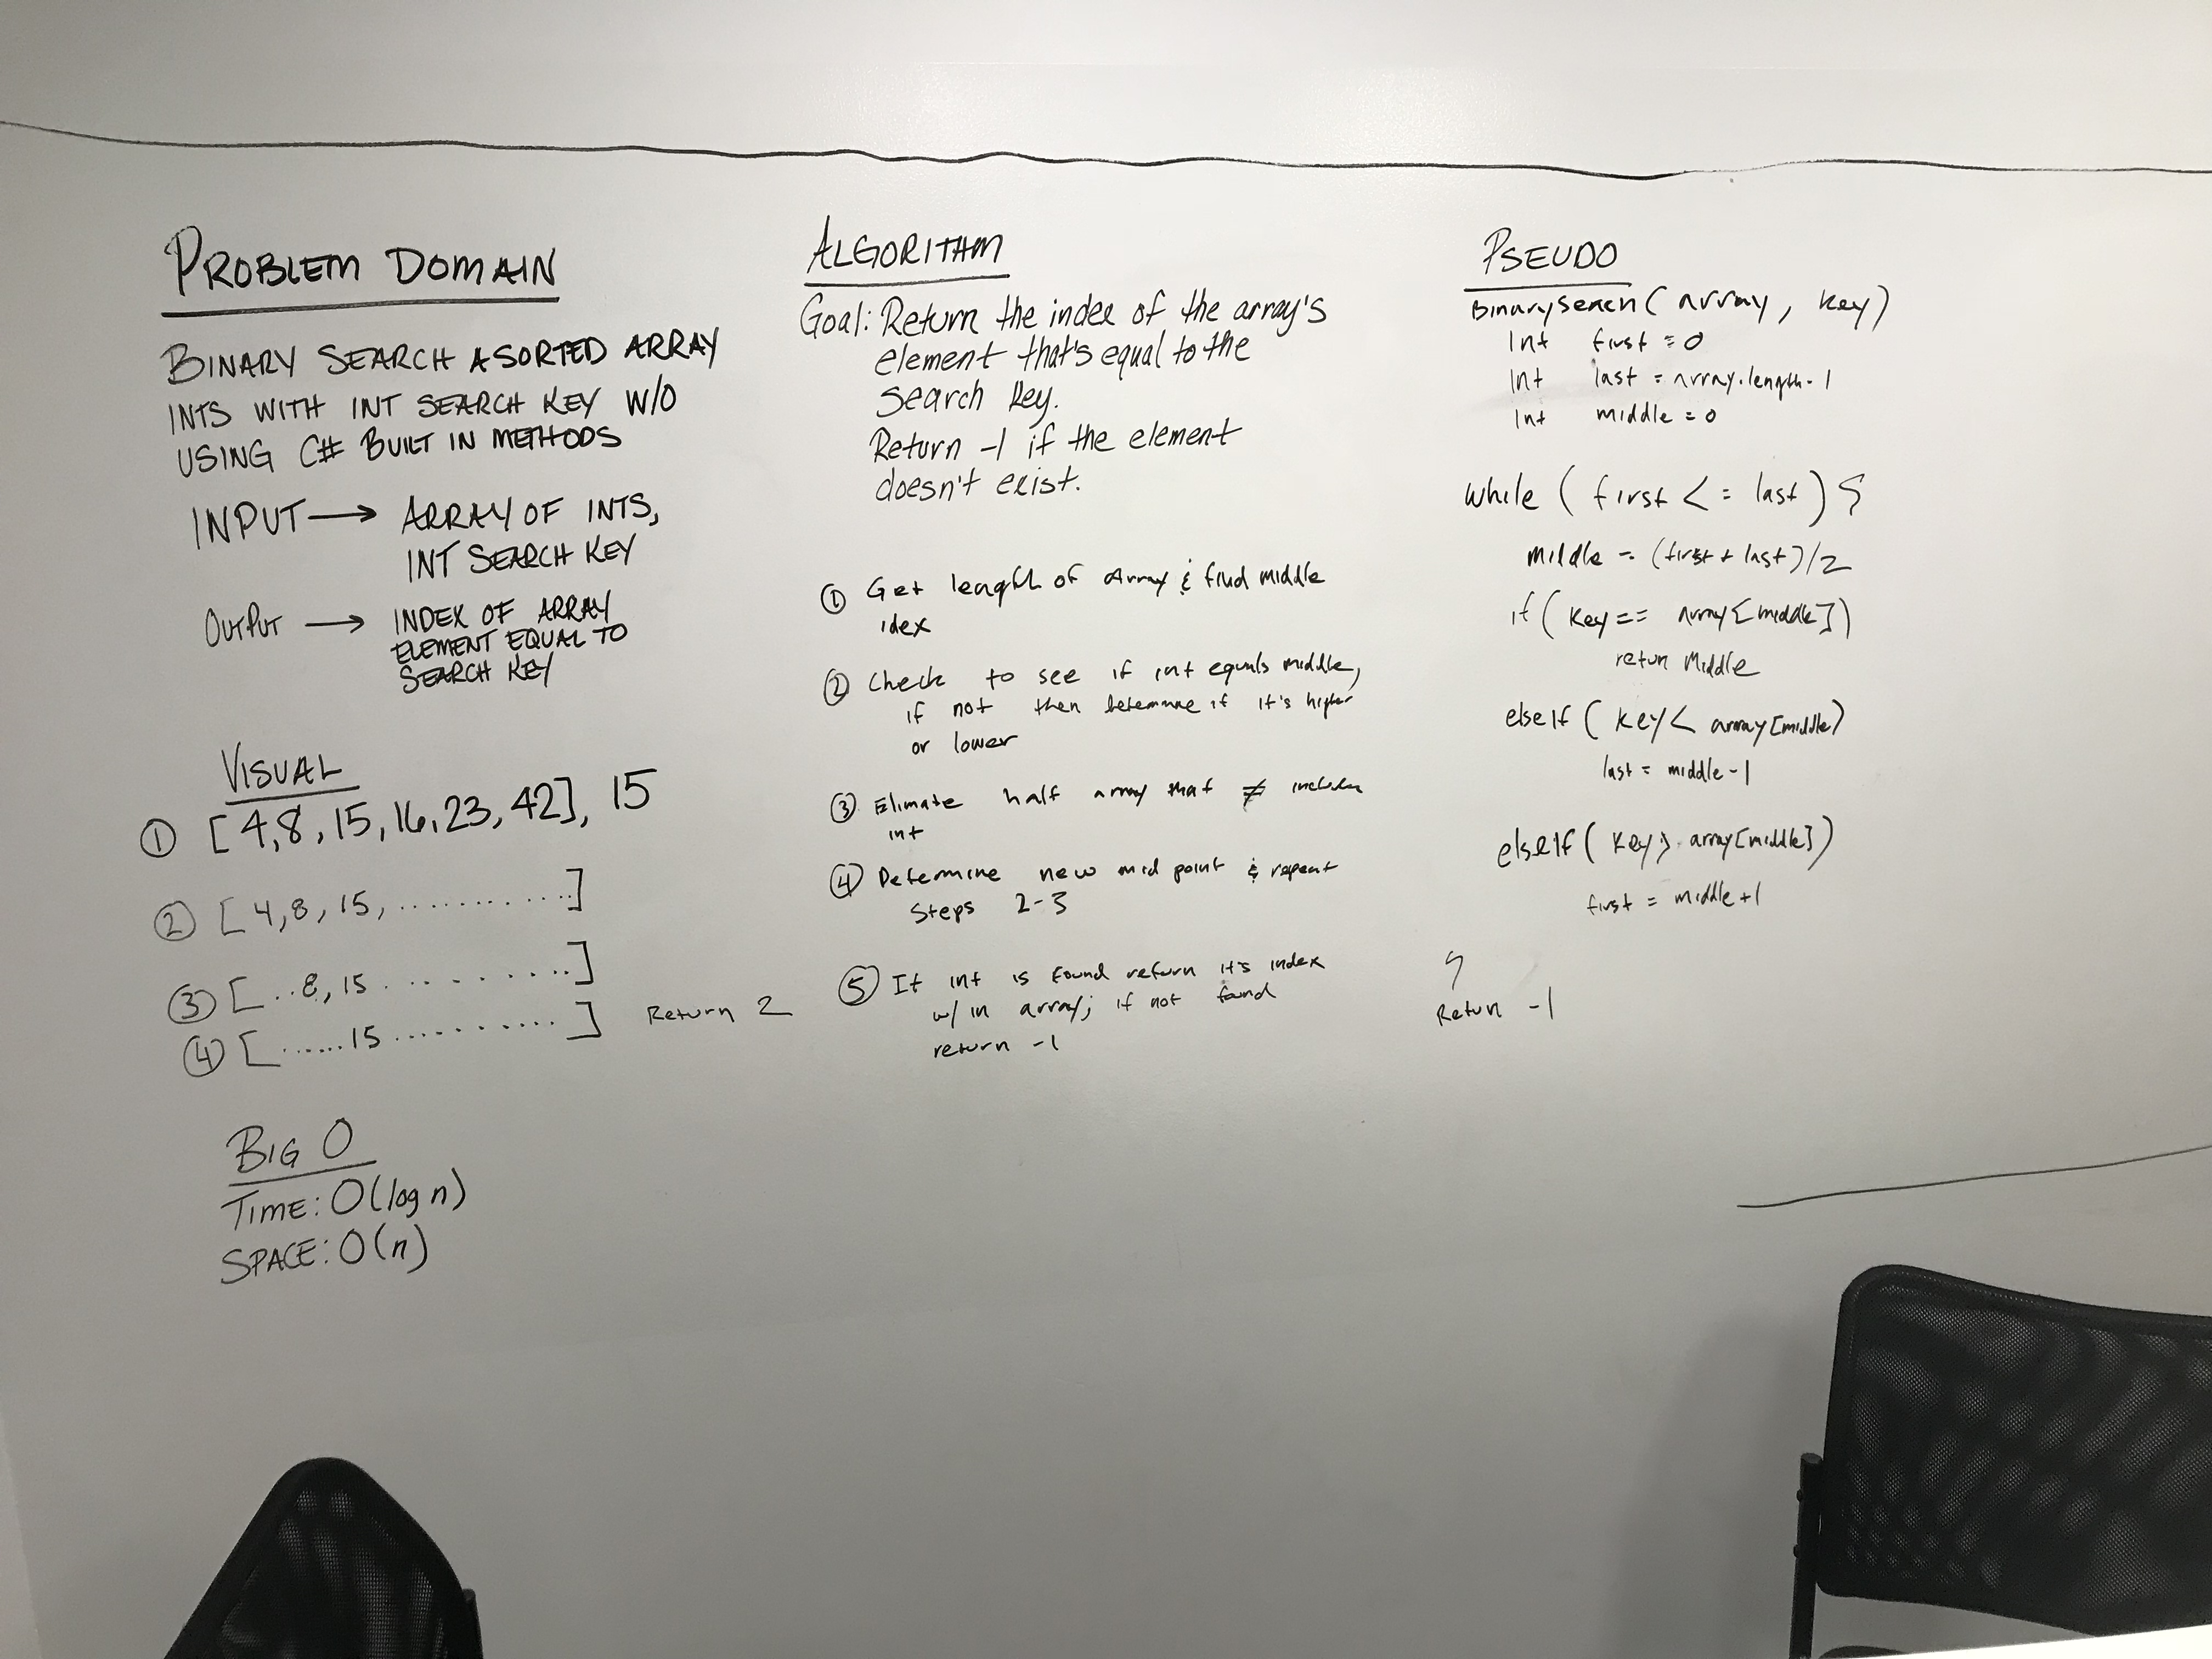 PROBLEM DOMAIN
BINARY SEARCH A SORTED ARRAY
INTS WITH INT SEARCH KEY W/O
USING C# BUILT IN METHODS
INPUT → ARRAY OF INTS,
INT SEARCH KEY
OUTPUT → INDEX OF ARRAY
ELEMENT EQUAL TO
SEARCH KEY
VISUAL
① [4,8,15,16,23,42], 15
② [4,8,15,..............]
③ [..8,15...........]
④ [......15...........] Return 2
BIG O
TIME: O(log n)
SPACE: O(n)
ALGORITHM
Goal: Return the index of the array's
element that's equal to the
search key.
Return -1 if the element
doesn't exist.
① Get length of Array & find middle
idex
② Check to see if int equals middle,
if not then determine if it's higher
or lower
③ Elimate half array that ≠ includes
int
④ Determine new mid point & repeat
Steps 2-3
⑤ If int is found return it's index
w/in array; if not found
return -1
PSEUDO
BinarySearch(array, key)
Int first = 0
Int last = array.length-1
Int middle = 0
while (first <= last) {
middle = (first + last)/2
if (key == array[middle])
retun Middle
elseIf (key < array[middle)
last = middle-1
elseIf (key > array[middle])
first = middle+1
}
Retun -1